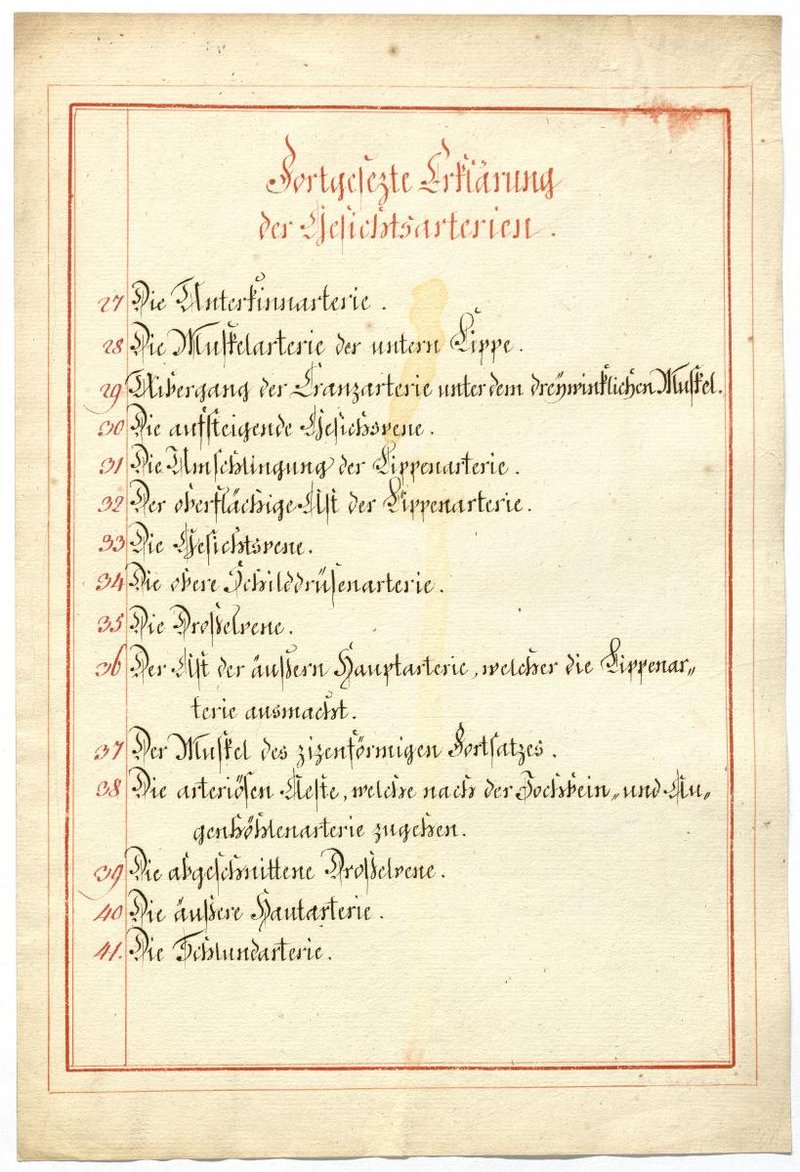 Fortgesezte Erklärung
der Gesichtsarterien.
27 Die Unterkinnarterie.
28 Die Muskelarterie der untern Lippe.
29 Uibergang der Cranzarterie unter dem dreÿwinklichen Muskel.
30 Die aufsteigende Gesichsvene.
31 Die Umschlingung der Lippenarterie.
32 Der oberflächige Ast der Lippenarterie.
33 Die Gesichtsvene.
34 Die obere Schilddrüsenarterie.
35 Die Droßelvene.
36 Der Ast der äußern Hauptarterie, welcher die Lippenar„
terie ausmacht.
37 Der Muskel des zizenförmigen Fortsatzes.
38 Die arteriösen Aeste, welche nach der Jochbein„ und Au„
genhöhlenarterie zugehen.
39 Die abgeschnittene Droßelvene.
40 Die äußere Hautarterie.
41. Die Schlundarterie.